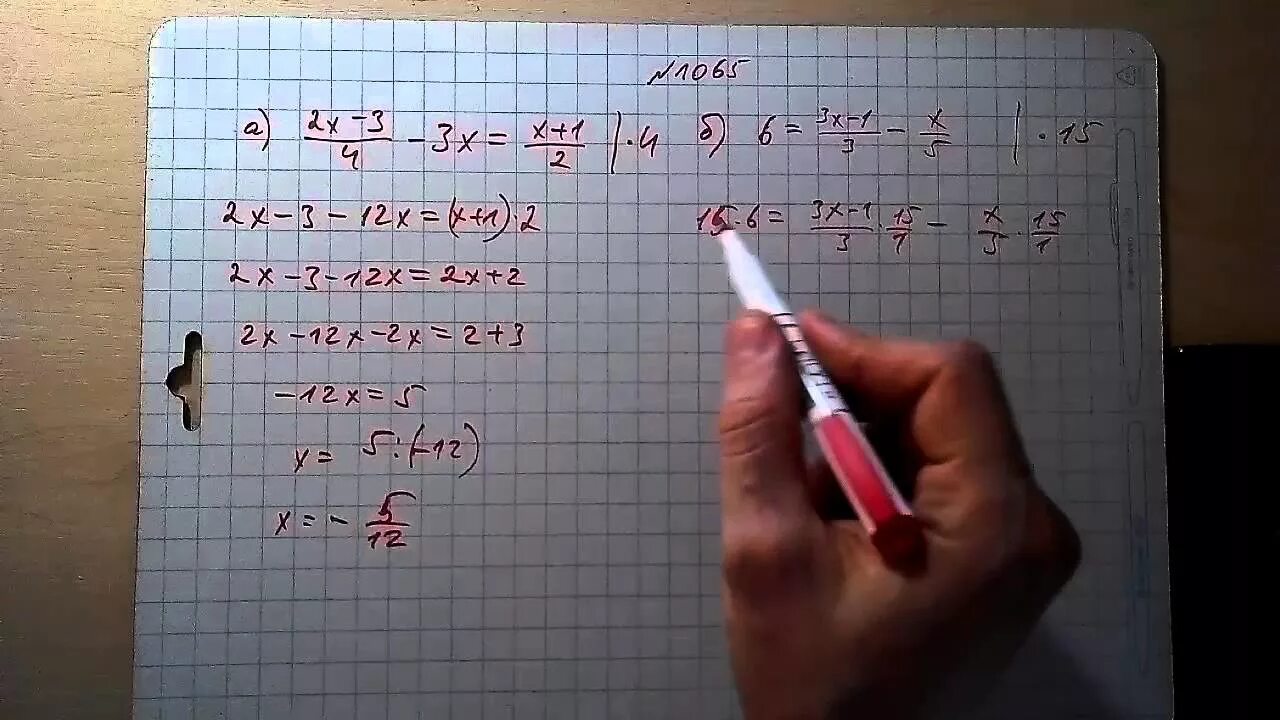 №1065
а) (2x-3)/4 - 3x = (x+1)/2 | · 4
2x - 3 - 12x = (x+1) · 2
2x - 3 - 12x = 2x + 2
2x - 12x - 2x = 2 + 3
-12x = 5
x = 5 : (-12)
x = - 5/12
б) 6 = (3x-1)/3 - x/5 | · 15
15 · 6 = (3x-1)/3 · 15/1 - x/5 · 15/1